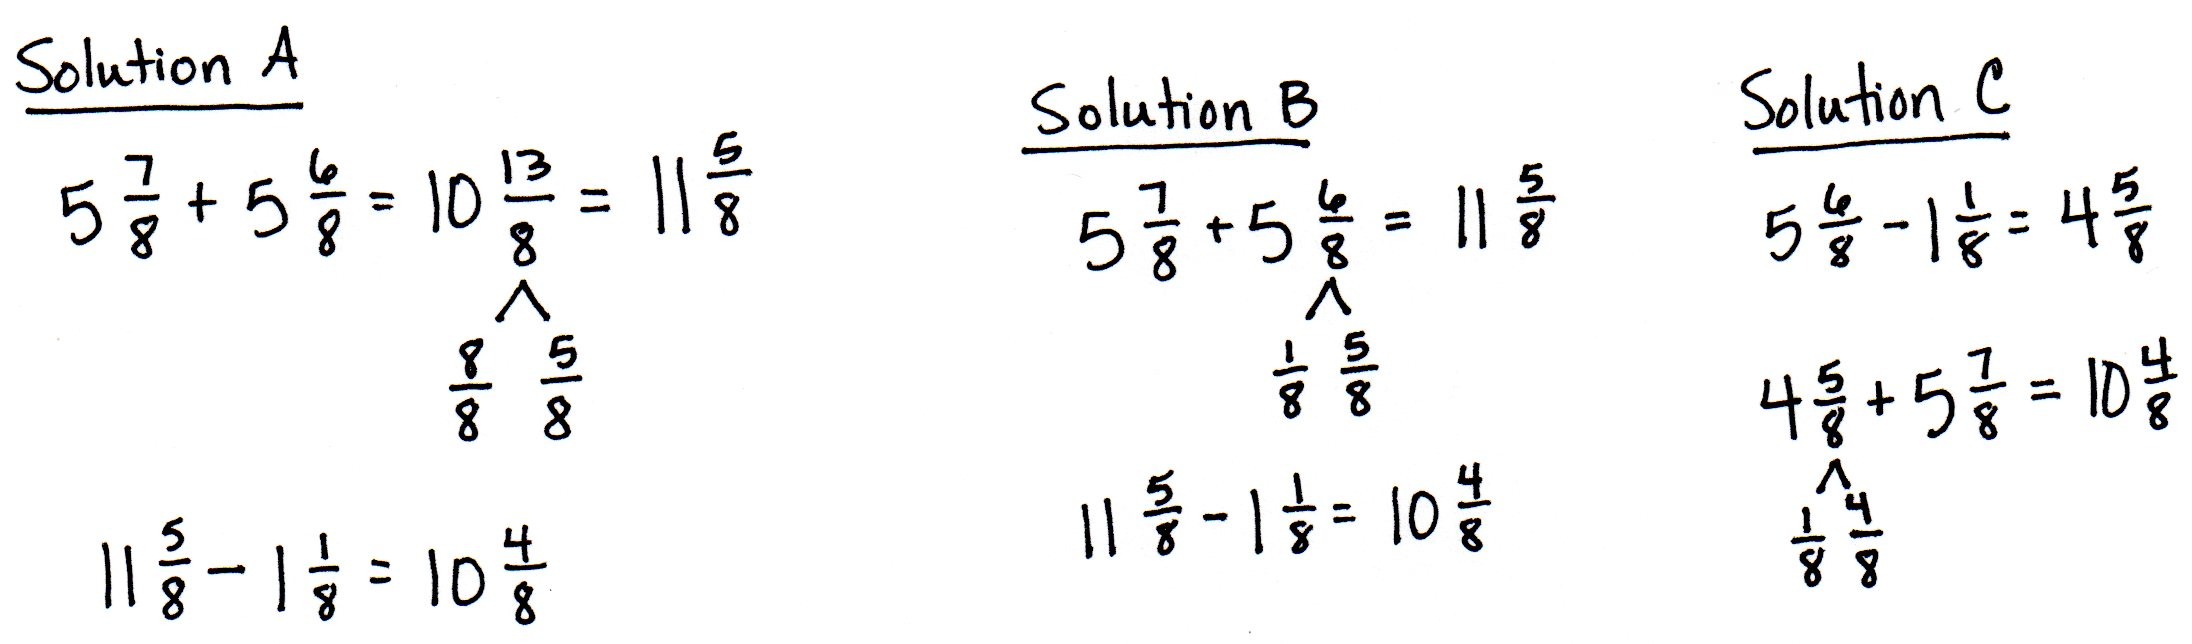 Solution A
5 7/8 + 5 6/8 = 10 13/8 = 11 5/8
8/8 5/8
11 5/8 - 1 1/8 = 10 4/8
Solution B
5 7/8 + 5 6/8 = 11 5/8
1/8 5/8
11 5/8 - 1 1/8 = 10 4/8
Solution C
5 6/8 - 1 1/8 = 4 5/8
4 5/8 + 5 7/8 = 10 4/8
1/8 4/8